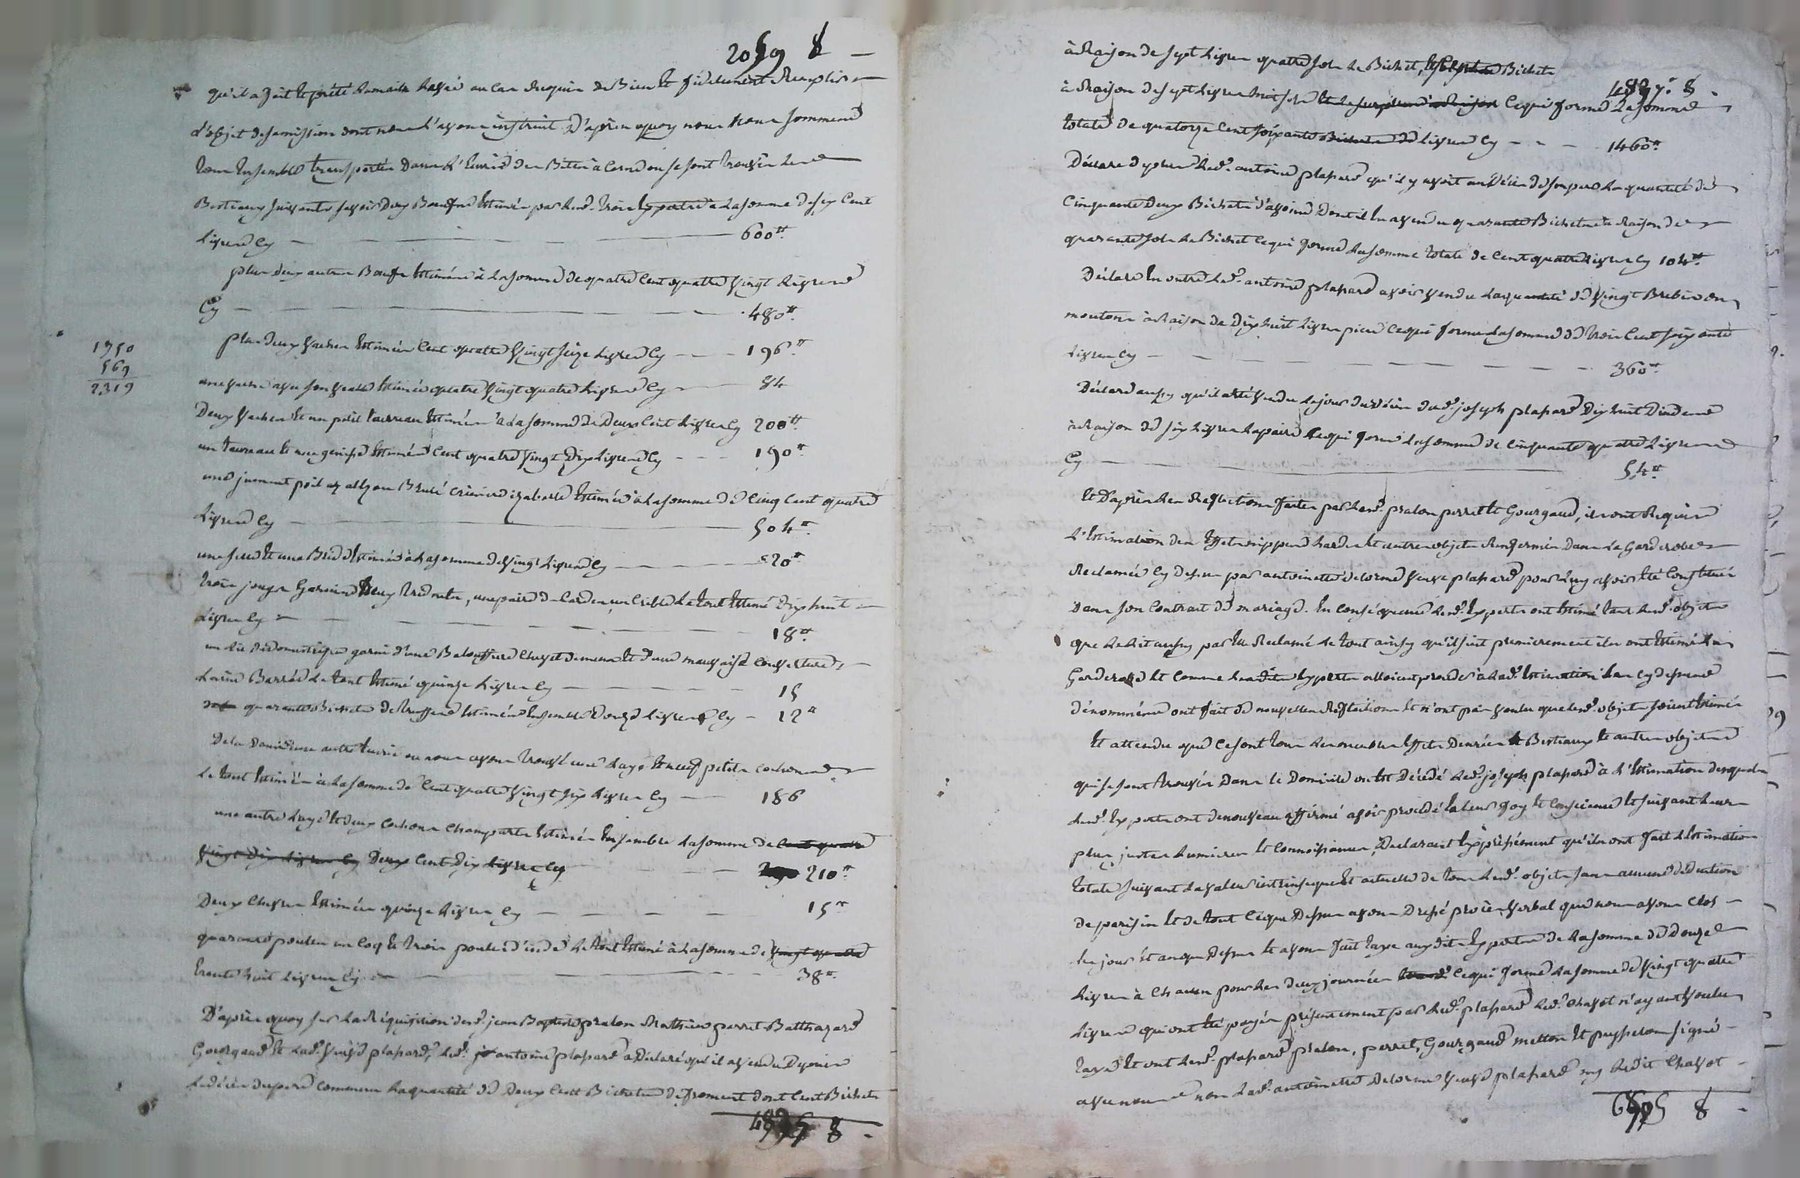 2059 8
qu'il a fait et prêté la main levée au cas requis de Bien et fidelement Remplir
l'objet de sa mission dont nous l'avons instruit. D'après quoy nous nous sommes
tous Ensemble transportés Dans l'Ecurie des Betes à Corne où se sont trouvés les
Bestiaux suivants savoir Deux Boeufs Estimés par les d. trois Experts à la somme de six Cent
Livres Cy 600tt
plus deux autres Boeufs Estimés à la somme de quatre Cent quatre Vingt Livres
Cy 480tt
plus deux Vaches Estimées Cent quatre Vingt seize Livres Cy 196tt
1750
569
2319
une vache avec son veau Estimée quatre Vingt quatre Livres Cy 84
Deux Vaches et un petit taureau Estimés à la somme de Deux Cent Livres Cy 200tt
un taureau et une genisse Estimés Cent quatre Vingt Dix Livres Cy 190tt
une jument poil Brulé criniere Estimée à la somme de Cinq Cent quatre
Livres Cy 504tt
une selle et une Bride Estimée à la somme de Vingt Livres Cy 20tt
trois jougs Garnis une paire de un Crible Le tout Estimé Dix huit
Livres Cy 18tt
un lit de Domestique garni d'une et d'une mauvaise Couverture
Laine Barrée Le tout Estimé quinze Livres Cy 15
quarante Bichets de truffes Estimés Ensemble Douze Livres Cy 12tt
De là dans une autre Ecurie où nous avons trouvé une Laye et neuf petits cochons
Le tout Estimé à la somme de Cent quatre Vingt six Livres Cy 186
une autre Laye et deux cochons Estimés Ensemble la somme de Cent quatre
Vingt Dix Livres Cy Deux Cent Dix Livres Cy 210tt
Deux Chevres Estimées quinze Livres Cy 15tt
quarante poules un Coq et trois poules d'inde Le tout Estimé à la somme de Vingt quatre
trente huit Livres Cy 38tt
D'après quoy sur la Requisition des d. jean Baptiste pralon Mathieu perret Balthazard
Gourgaud et la d. Veuve plapard, le d. antoine plapard a Déclaré qu'il a vendu Depuis
Le décès du pere commun la quantité de Deux Cent Bichets de froment dont Cent Bichets
4895 8
à Raison de sept Livres quatre sols Le Bichet, Bichets
4897. 8
à Raison de sept Livres huit sols Ce qui forme la somme
totale de quatorze Cent soixante Livres Cy 1460tt
Déclare de plus le d. antoine plapard qu'il y avoit au Décès de son pere la quantité de
Cinquante Deux Bichets d'avoine Dont il en a vendu quarante Bichets à Raison de
quarante sols Le Bichet Ce qui forme la somme totale de Cent quatre Livres Cy 104tt
Déclare En outre le d. antoine plapard avoir vendu la quantité de Vingt Brebis ou
moutons à Raison de Dix huit Livres piece Ce qui forme la somme de trois Cent soixante
Livres Cy 360tt
Déclare aussy qu'il a été vendu du d. joseph plapard Dix huit Dindes
à Raison de six Livres la paire Ce qui forme la somme de Cinquante quatre Livres
Cy 54tt
Et D'après les Requisitions faites par les d. pralon perret et Gourgaud, ils ont Requis
L'Estimation des Effets nippes hardes et autres objets Renfermés Dans la Garderobe
Reclamée Cy Dessus par antoinette delorme Veuve plapard pour luy avoir été Constitué
Dans son Contrat de mariage. En Conséquence les d. Experts ont Estimé tous les d. objets
que le Lit aussy par Elle Reclamé Le tout ainsy qu'il suit premierement ils ont Estimé la
Garderobe Et Comme les dits Experts alloient proceder à la d. Estimation les cy dessus
dénommés ont fait de nouvelles Reflections et n'ont pas voulu que les d. objets soient Estimés
Et attendu que Ce sont tous les meubles Effets Denrées et Bestiaux Et autres objets
qui se sont trouvés Dans le Domicile où Est Décédé le d. joseph plapard à l'Estimation desquels
les d. Experts ont de nouveau affirmé avoir procédé En leur foy Et Conscience Et suivant leurs
plus justes Lumieres Et Connoissances, Declarant Expressément qu'ils ont fait l'Estimation
totale suivant la valeur intrinseque Et actuelle de tous les d. objets sans aucune déduction
de parisis Et de tout Ce que Dessus avons Dressé procès Verbal que nous avons Clos
les jours Et an que Dessus Et avons fait taxe aux dits Experts de la somme de Douze
Livres à Chacun pour les deux journées Ce qui forme la somme de Vingt quatre
Livres qui ont été payés présentement par le d. plapard le d. Chavot n'ayant Voulu
taxe Et ont les d. plapard pralon, perret, Gourgaud metton Et signé
avec nous non la d. antoinette Delorme Veuve plapard ny Le dit Chavot
6875 8